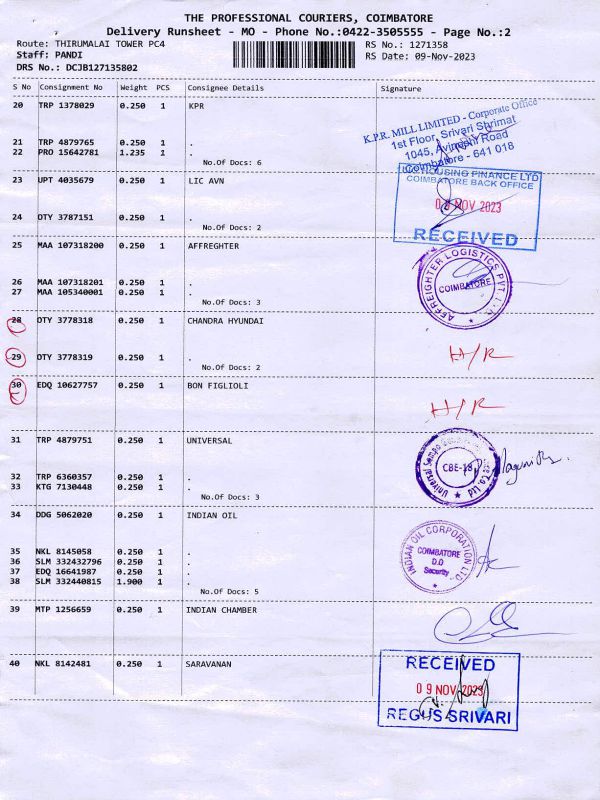 THE PROFESSIONAL COURIERS, COIMBATORE
Delivery Runsheet - MO - Phone No.:0422-3505555 - Page No.:2
Route: THIRUMALAI TOWER PC4
Staff: PANDI
DRS No.: DCJB127135802
RS No.: 1271358
RS Date: 09-Nov-2023
S No Consignment No Weight PCS Consignee Details Signature
20 TRP 1378029 0.250 1 KPR
K.P.R. MILL LIMITED - Corporate Office
1st Floor, Srivari Shrimat
1045, Avinashi Road
Coimbatore - 641 018
21 TRP 4879765 0.250 1 .
22 PRO 15642781 1.235 1 .
No.Of Docs: 6
23 UPT 4035679 0.250 1 LIC AVN
HOUSING FINANCE LTD
COIMBATORE BACK OFFICE
NOV 2023
RECEIVED
24 OTY 3787151 0.250 1 .
No.Of Docs: 2
25 MAA 107318200 0.250 1 AFFREGHTER
AFFREIGHTER LOGISTICS PVT. LTD.
COIMBATORE
26 MAA 107318201 0.250 1 .
27 MAA 105340001 0.250 1 .
No.Of Docs: 3
28 OTY 3778318 0.250 1 CHANDRA HYUNDAI
29 OTY 3778319 0.250 1 .
H/R
No.Of Docs: 2
30 EDQ 10627757 0.250 1 BON FIGLIOLI
H/R
31 TRP 4879751 0.250 1 UNIVERSAL
Universal Sompo
Co. Ltd
CBE-18
32 TRP 6360357 0.250 1 .
33 KTG 7130448 0.250 1 .
No.Of Docs: 3
34 DDG 5062020 0.250 1 INDIAN OIL
INDIAN OIL CORPORATION LTD.
COIMBATORE
D.O
Security
35 NKL 8145058 0.250 1 .
36 SLM 332432796 0.250 1 .
37 EDQ 16641987 0.250 1 .
38 SLM 332440815 1.900 1 .
No.Of Docs: 5
39 MTP 1256659 0.250 1 INDIAN CHAMBER
40 NKL 8142481 0.250 1 SARAVANAN
RECEIVED
09 NOV 2023
REGUS SRIVARI